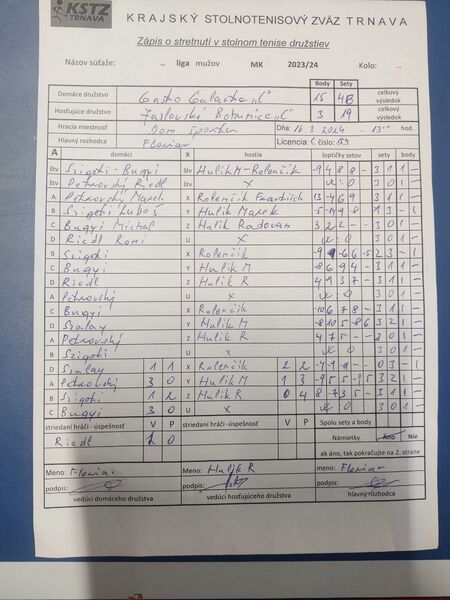 KSTZ
TRNAVA
KRAJSKÝ STOLNOTENISOVÝ ZVÄZ TRNAVA
Zápis o stretnutí v stolnom tenise družstiev
Názov súťaže: .. liga mužov MK 2023/24 Kolo: ..
Body Sety
Domáce družstvo Galanta "C" 15 48 celkový výsledok
Hosťujúce družstvo Jaslovské Bohunice "C" 3 19 celkový výsledok
Hracia miestnosť Dom športu Dňa: 16.3.2024 hod.
Hlavný rozhodca Florian Licencia: č. číslo:
A domáci X hostia loptičky setov sety body
štv Szigeti - Bugyi štv Hulik M - Rolenčik -9 4 8 8 - 3 1 1 -
štv Petrovský Riedl štv X 3 0 1 -
A Petrovský Marek X Rolenčik 3 0 1 -
B Szigeti Luboš Y Hulik Marek 1 3 - 1
C Bugyi Michal Z Hulik Radovan 3 2 2 - - 3 0 1 -
D Riedl Roni U X 3 0 1 -
B Szigeti X Rolenčik 2 3 - 1
C Bugyi Y Hulik M -8 6 9 4 - 3 1 1 -
D Riedl Z Hulik R 4 9 -3 7 - 3 1 1 -
A Petrovský U X 3 0 1 -
C Bugyi X Rolenčik -10 6 7 8 - 3 1 1 -
D Szalay Y Hulik M -8 10 5 -8 6 3 2 1 -
A Petrovský Z Hulik R 4 7 5 - - 3 0 1 -
B Szigeti U X 3 0 1 -
D Szalay 1 1 X Rolenčik 2 2 0 3 - 1
A Petrovský 3 0 Y Hulik M 1 3 -9 5 5 -9 5 3 2 1 -
B Szigeti 1 2 Z Hulik R 0 4 8 7 -3 5 - 3 1 1 -
C Bugyi 3 0 U X 3 0 1 -
striedaní hráči - úspešnosť V P striedaní hráči -úspešnosť V P Spolu sety a body
Riedl 0 Námietky Áno Nie
ak áno, tak pokračujte na 2. strane
Meno: Florian Meno: Hulik R Meno: Florian
podpis: podpis: podpis:
vedúci domáceho družstva vedúci hosťujúceho družstva hlavný rozhodca